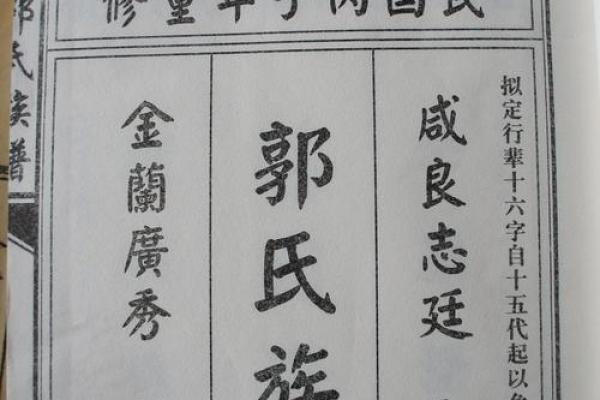 民国丙子年重修
拟定行輩十六字自十五代起以
咸良志廷
郭氏族
金蘭廣秀
郭氏族譜